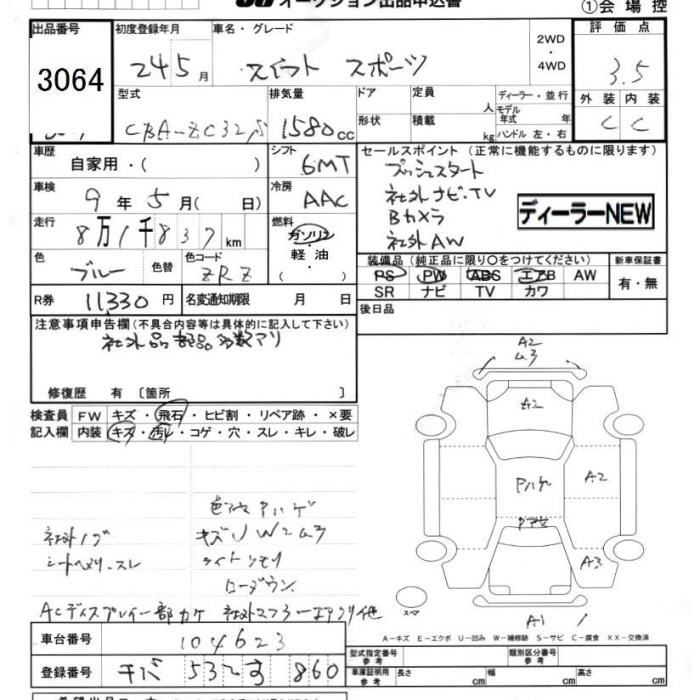 オークション出品申込書
①会場控
出品番号 初度登録年月 車名・グレード 2WD・4WD 評価点
3064 24 5月 スイフト スポーツ 3.5
型式 排気量 ドア 定員 人 ディーラー・並行 外装 内装
CBA-ZC32S 1580cc 形状 積載 kg モデル年式 年 ハンドル 左・右 C C
車歴 自家用・( ) シフト 6MT セールスポイント (正常に機能するものに限ります)
プッシュスタート
車検 9年5月( 日) 冷房 AAC 社外ナビ・TV
Bカメラ
ディーラーNEW
走行 8万1千837km 燃料 ガソリン・軽油・ 社外AW
色 ブルー 色替 色コード ZRZ
装備品 (純正品に限り〇をつけてください) 新車保証書
PS PW ABS エアB AW 有・無
SR ナビ TV カワ
R券 11330円 名変通知期限 月 日 後日品
注意事項申告欄(不具合内容等は具体的に記入して下さい)
社外品部品多数アリ
修復歴 有〔箇所 〕
検査員 FW キズ・飛石・ヒビ割・リペア跡・×要
記入欄 内装 キズ・汚レ・コゲ・穴・スレ・キレ・破レ
A2
A2
Pハゲ
A2
A3
A1
スペア
Pハゲ
社外ノブ キズ
スレ
ローダウン
ACディスプレイ一部カケ 社外マフラー エアクリ他
A-キズ E-エクボ U-凹み W-補修跡 S-サビ C-腐食 XX-交換済
車台番号 104623
登録番号 チバ 530 す 860
型式指定番号 参考 類別区分番号 参考
車庫証明用 参考 長さ cm 幅 cm 高さ cm